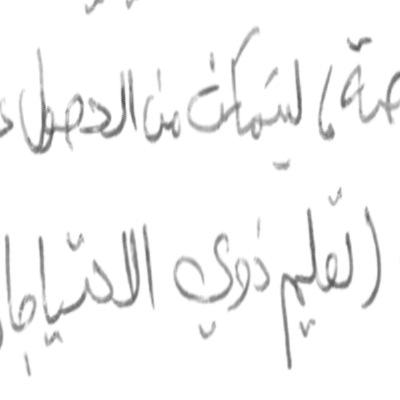 صة، ليتمكن من الحصول
(تعليم ذوي الاحتياجا